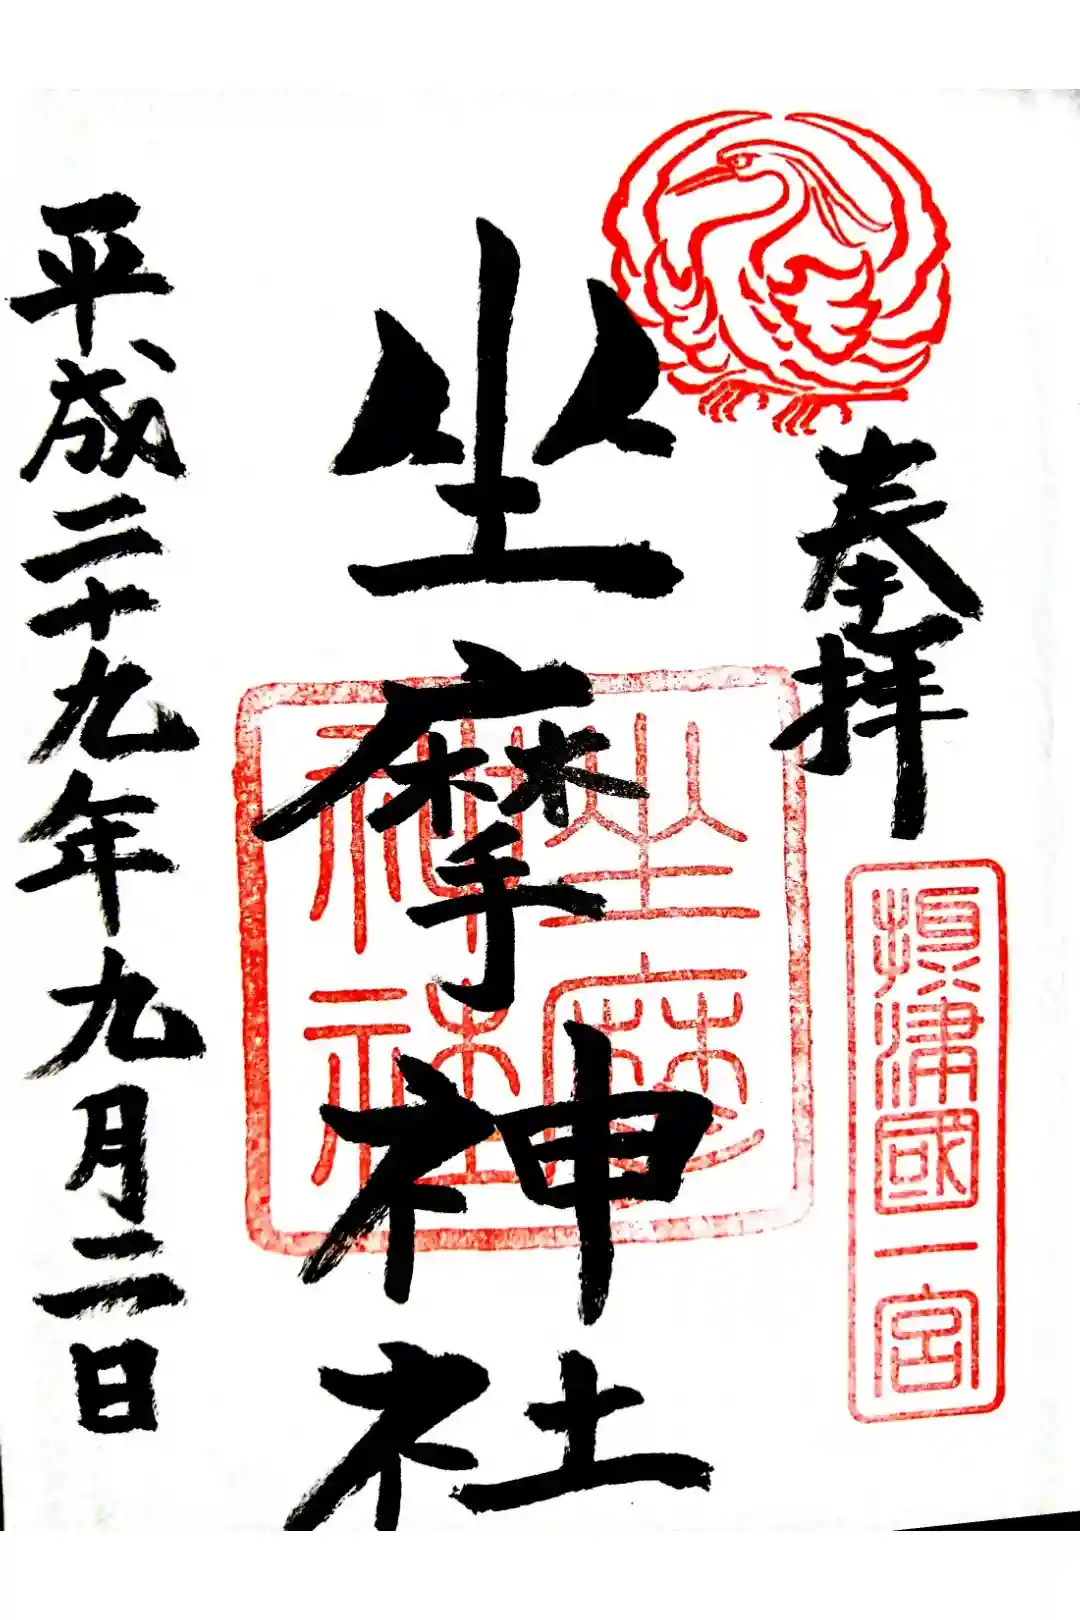 奉拝
摂津國一宮
坐摩神社
坐摩
神社
平成二十九年九月二日